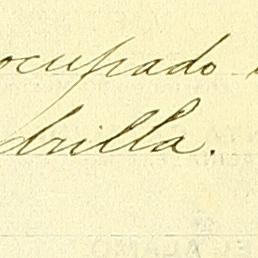 ocupado
drilla.